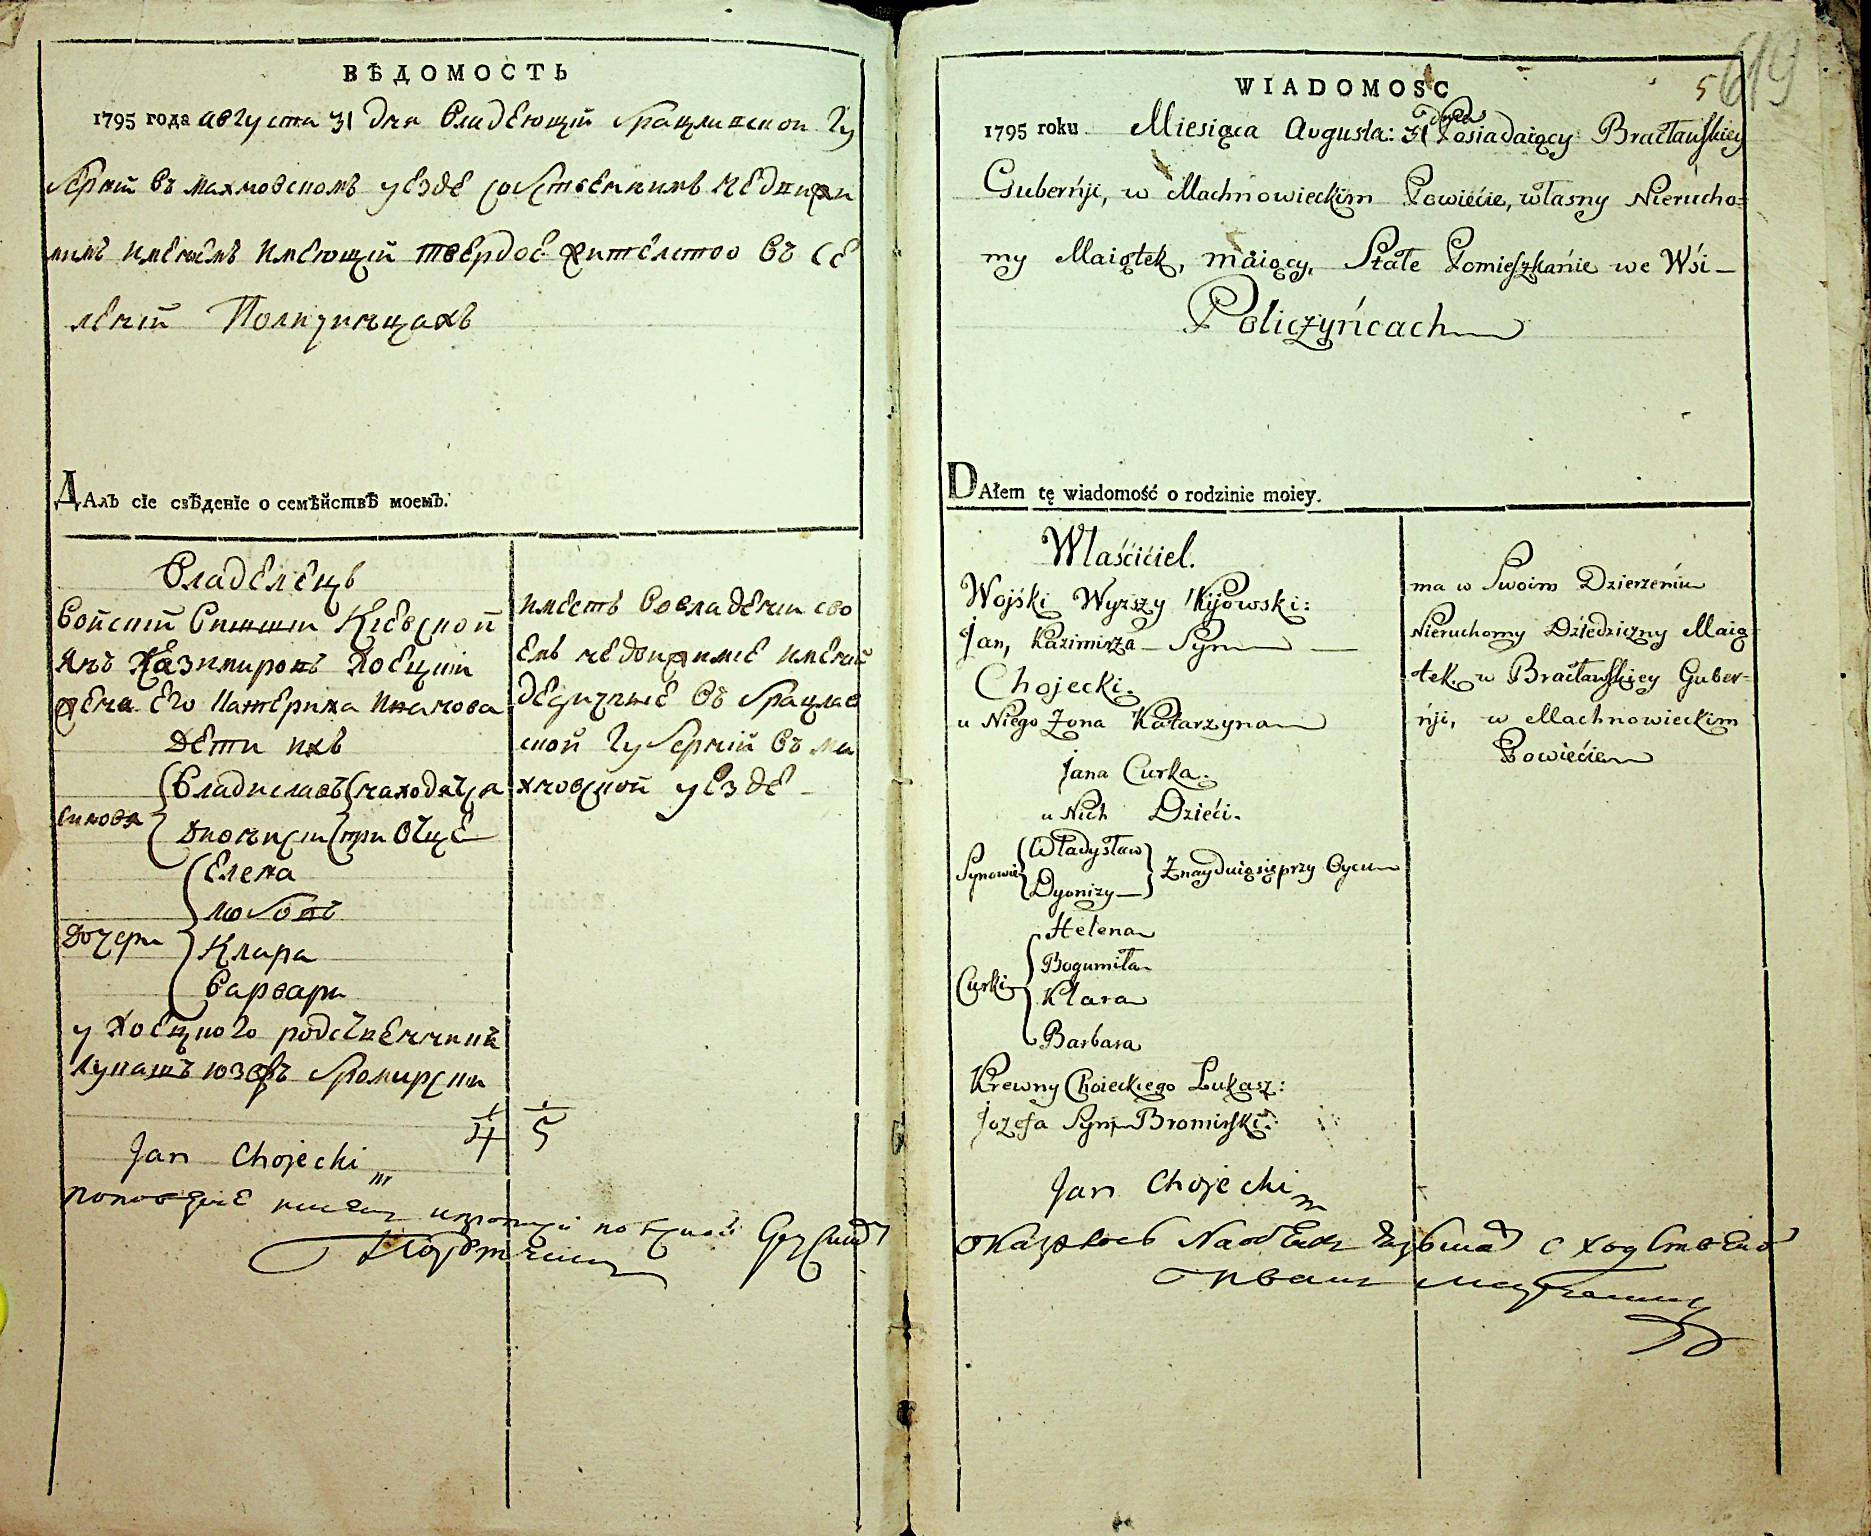 ВѢДОМОСТЬ
1795 года августа 31 дня Владеющій Брацлавской Гу
берній въ махновскомъ уезде собственнимъ недвижи
мимъ имениемъ имеющій твердое жителство въ се
леній Поличинцахъ
ДАлъ сіе свѣденіе о семѣйствѣ моемъ.
Владелецъ
Войскій Кіевской
Янъ Казимировъ Хоецкій
жена его Катерина Иванова
дети ихъ
Владиславъ находятся
синовя
Дионисій при отце
Елена
Любовь
Дочери
Клара
Варвара
у Хоецкого родственникъ
Лукашъ Юзефъ Бромирски
имеетъ во владении сво
емъ недвижимие имений
дедичние въ Брацлав
ской Губерній въ ма
хновской уезде
4 5
Jan Chojecki
WIADOMOSC
5 619
1795 roku Miesiąca Augusta: 31 Dnia Posiadaiący Bracławskiey
Guberńji, w Machnowieckim Powiećie, własny Nierucho=
my Maiątek, maiący, Stałe Pomieszkańie we Wśi
Policzyńcach
DAłem tę wiadomość o rodzinie moiey.
Właśćićiel.
Wojski Wyższy Kijowski:
Jan, Kazimirza Syn
Chojecki.
u Niego Żona Katarzyna
Jana Curka.
u Nich Dzieći.
Władysław
Synowie Znayduią się przy Oycu
Dyonizy
Helena
Bogumiła
Curki
Klara
Barbara
Krewny Choieckiego Łukasz:
Jozefa Syn Bromirski:
Jan Chojecki
ma w Swoim Dzierzeniu
Nieruchomy Dziedziczny Maią=
tek w Bracławskiey Guber=
ńji, w Machnowieckim
Powiećie